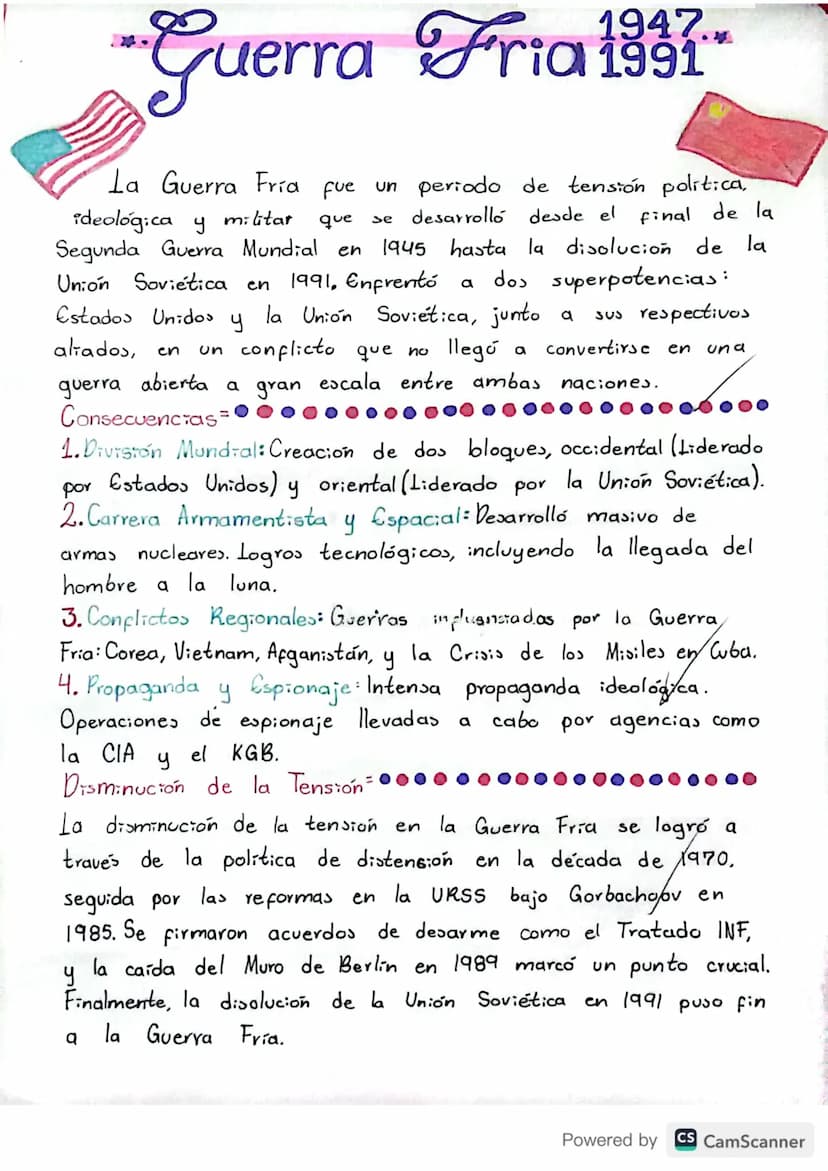 Guerra Fria 1947
1991
La Guerra Fría fue un periodo de tensión política,
ideológica y militar que se desarrolló desde el final de la
Segunda Guerra Mundial en 1945 hasta la disolución de la
Unión Soviética en 1991. Enfrentó a dos superpotencias:
Estados Unidos y la Unión Soviética, junto a sus respectivos
aliados, en un conflicto que no llegó a convertirse en una
guerra abierta a gran escala entre ambas naciones.
Consecuencias=
1. División Mundial: Creación de dos bloques, occidental (Liderado
por Estados Unidos) y oriental (Liderado por la Unión Soviética).
2. Carrera Armamentista y Espacial: Desarrolló masivo de
armas nucleares. Logros tecnológicos, incluyendo la llegada del
hombre a la luna.
3. Conflictos Regionales: Guerras influenciadas por la Guerra
Fría: Corea, Vietnam, Afganistán, y la Crisis de los Misiles en Cuba.
4. Propaganda y Espionaje: Intensa propaganda ideológica.
Operaciones de espionaje llevadas a cabo por agencias como
la CIA y el KGB.
Disminución de la Tensión=
La disminución de la tensión en la Guerra Fría se logró a
través de la política de distensión en la década de 1970,
seguida por las reformas en la URSS bajo Gorbachov en
1985. Se firmaron acuerdos de desarme como el Tratado INF,
y la caída del Muro de Berlín en 1989 marcó un punto crucial.
Finalmente, la disolución de la Unión Soviética en 1991 puso fin
a la Guerra Fría.
Powered by CS CamScanner